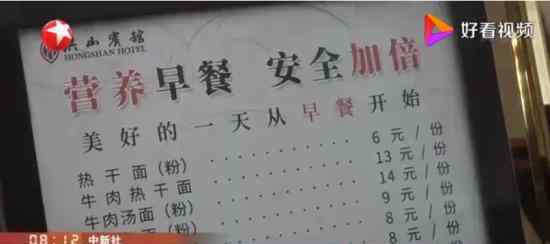 好看视频
洪山賓館
HONGSHAN HOTEL
营养早餐 安全加倍
美好的一天从早餐开始
热干面(粉) 6元/份
牛肉热干面 13元/份
牛肉汤面(粉) 14元/份
面(粉) 9元/份
8元/份
8元
08:12 中新社